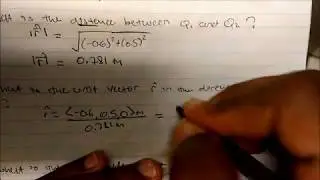 is the distance between Q₁ and Q₂ ?
|r⃗| = √(-0.6)²+(0.5)²
|r⃗| = 0.781 m
is the unit vector r̂ in the direc
r̂ = <-0.6, 0.5, 0> m / 0.781 m =